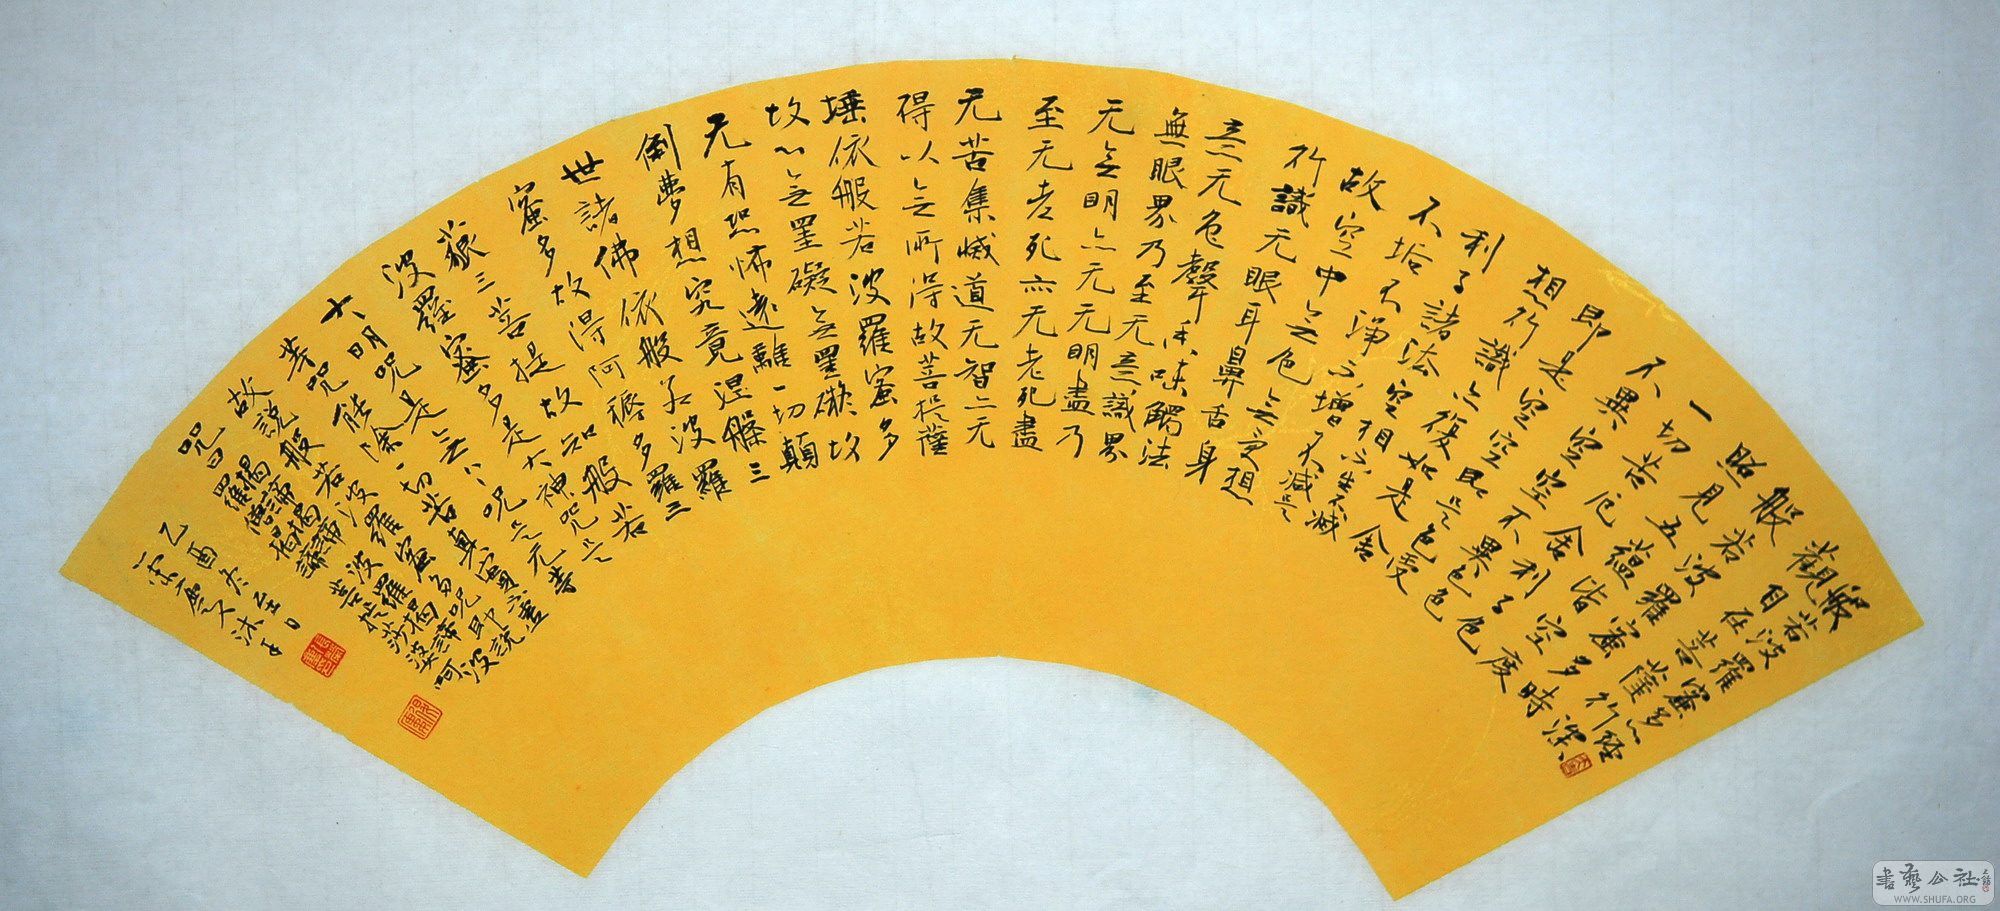 般若波羅蜜多心經
觀自在菩薩行深
般若波羅蜜多時
照見五蘊皆空度
一切苦厄舍利子色
不異空空不異色色
即是空空即是色受
想行識亦復如是舍
利子諸法空相不生不滅
不垢不淨不增不減是
故空中無色無受想
行識无眼耳鼻舌身
意无色聲香味觸法
無眼界乃至无意識界
无無明亦无无明盡乃
至无老死亦无老死盡
无苦集滅道无智亦无
得以無所得故菩提薩
埵依般若波羅蜜多
故心無罣礙無罣礙故
无有恐怖遠離一切顛
倒夢想究竟涅槃三
世諸佛依般若波羅
蜜多故得阿耨多羅三
藐三菩提故知般若
波羅蜜多是大神咒是
大明咒是無上咒是无等
等咒能除一切苦真實不虛
故說般若波羅蜜多咒即說
咒曰揭諦揭諦波羅揭諦波
羅僧揭諦菩提莎婆訶
乙酉冬至日
沐手
书艺公社
WWW.SHUFA.ORG